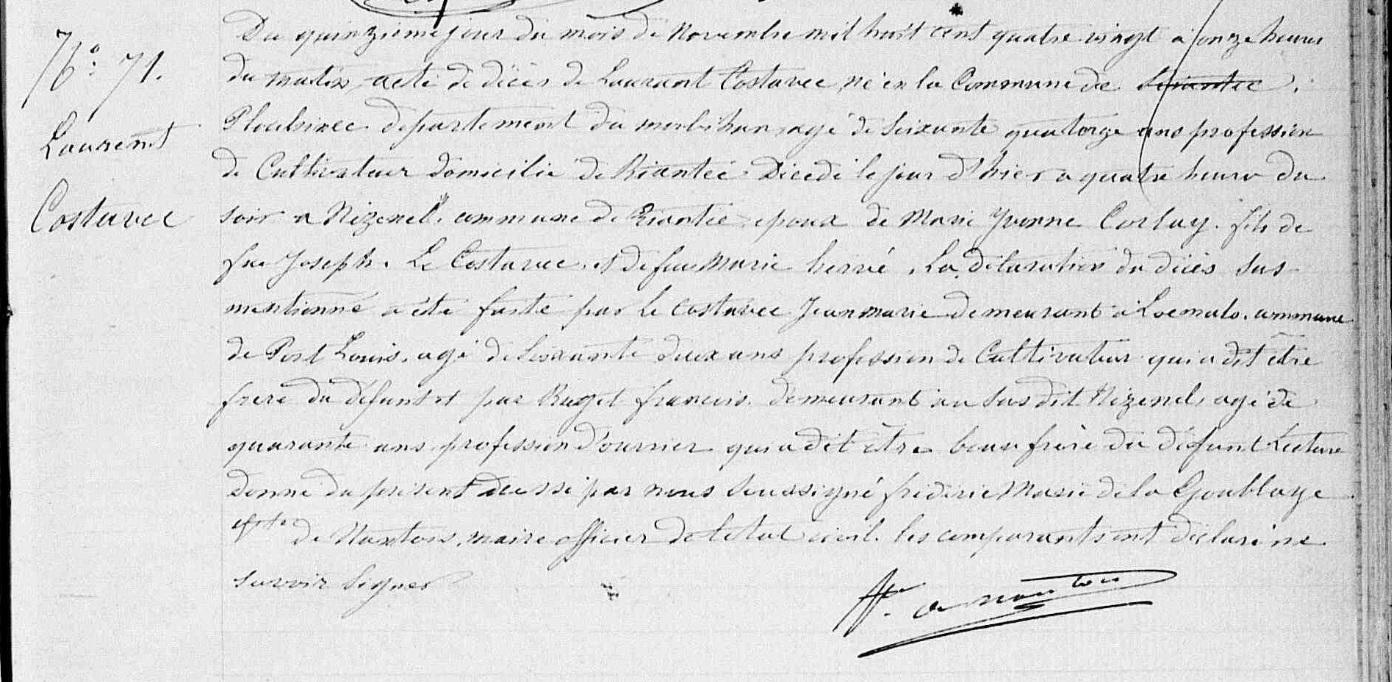 N°: 71.
Laurent
Costavec
Du quinzieme jour du mois de Novembre mil huit cent quatre vingt a onze heures
du matin, acte de décès de Laurent Costavec, né en la Commune de Riantec.
Plouhinec département du morbihan, agé de Soixante quatorze ans profession
de Cultivateur domicilié de Riantec Décédé le jour d'hier a quatre heure du
soir a Nizenel, commune de Riantec, epoux de Marie Yvonne Corlay. fils de
feu Joseph. Le Costavec, et de feu Marie hervé, La déclaration du décès sus
mentionné a été faite par le costavec Jean marie demeurant à Locmalo, commune
de Port Louis, agé de Soixante deux ans profession de Cultivateur qui a dit être
frere du défunt et par Ruget francois. demeurant au Sus dit Nizenel, agé de
quarante ans profession d'ouvrier qui a dit être beau frère du défunt Lecture
Donné du présent par nous Soussigné fréderic Marie de la Goublaye
de Nantois, maire officier de l'état civil. les comparants ont déclaré ne
savoir Signer
de nantois